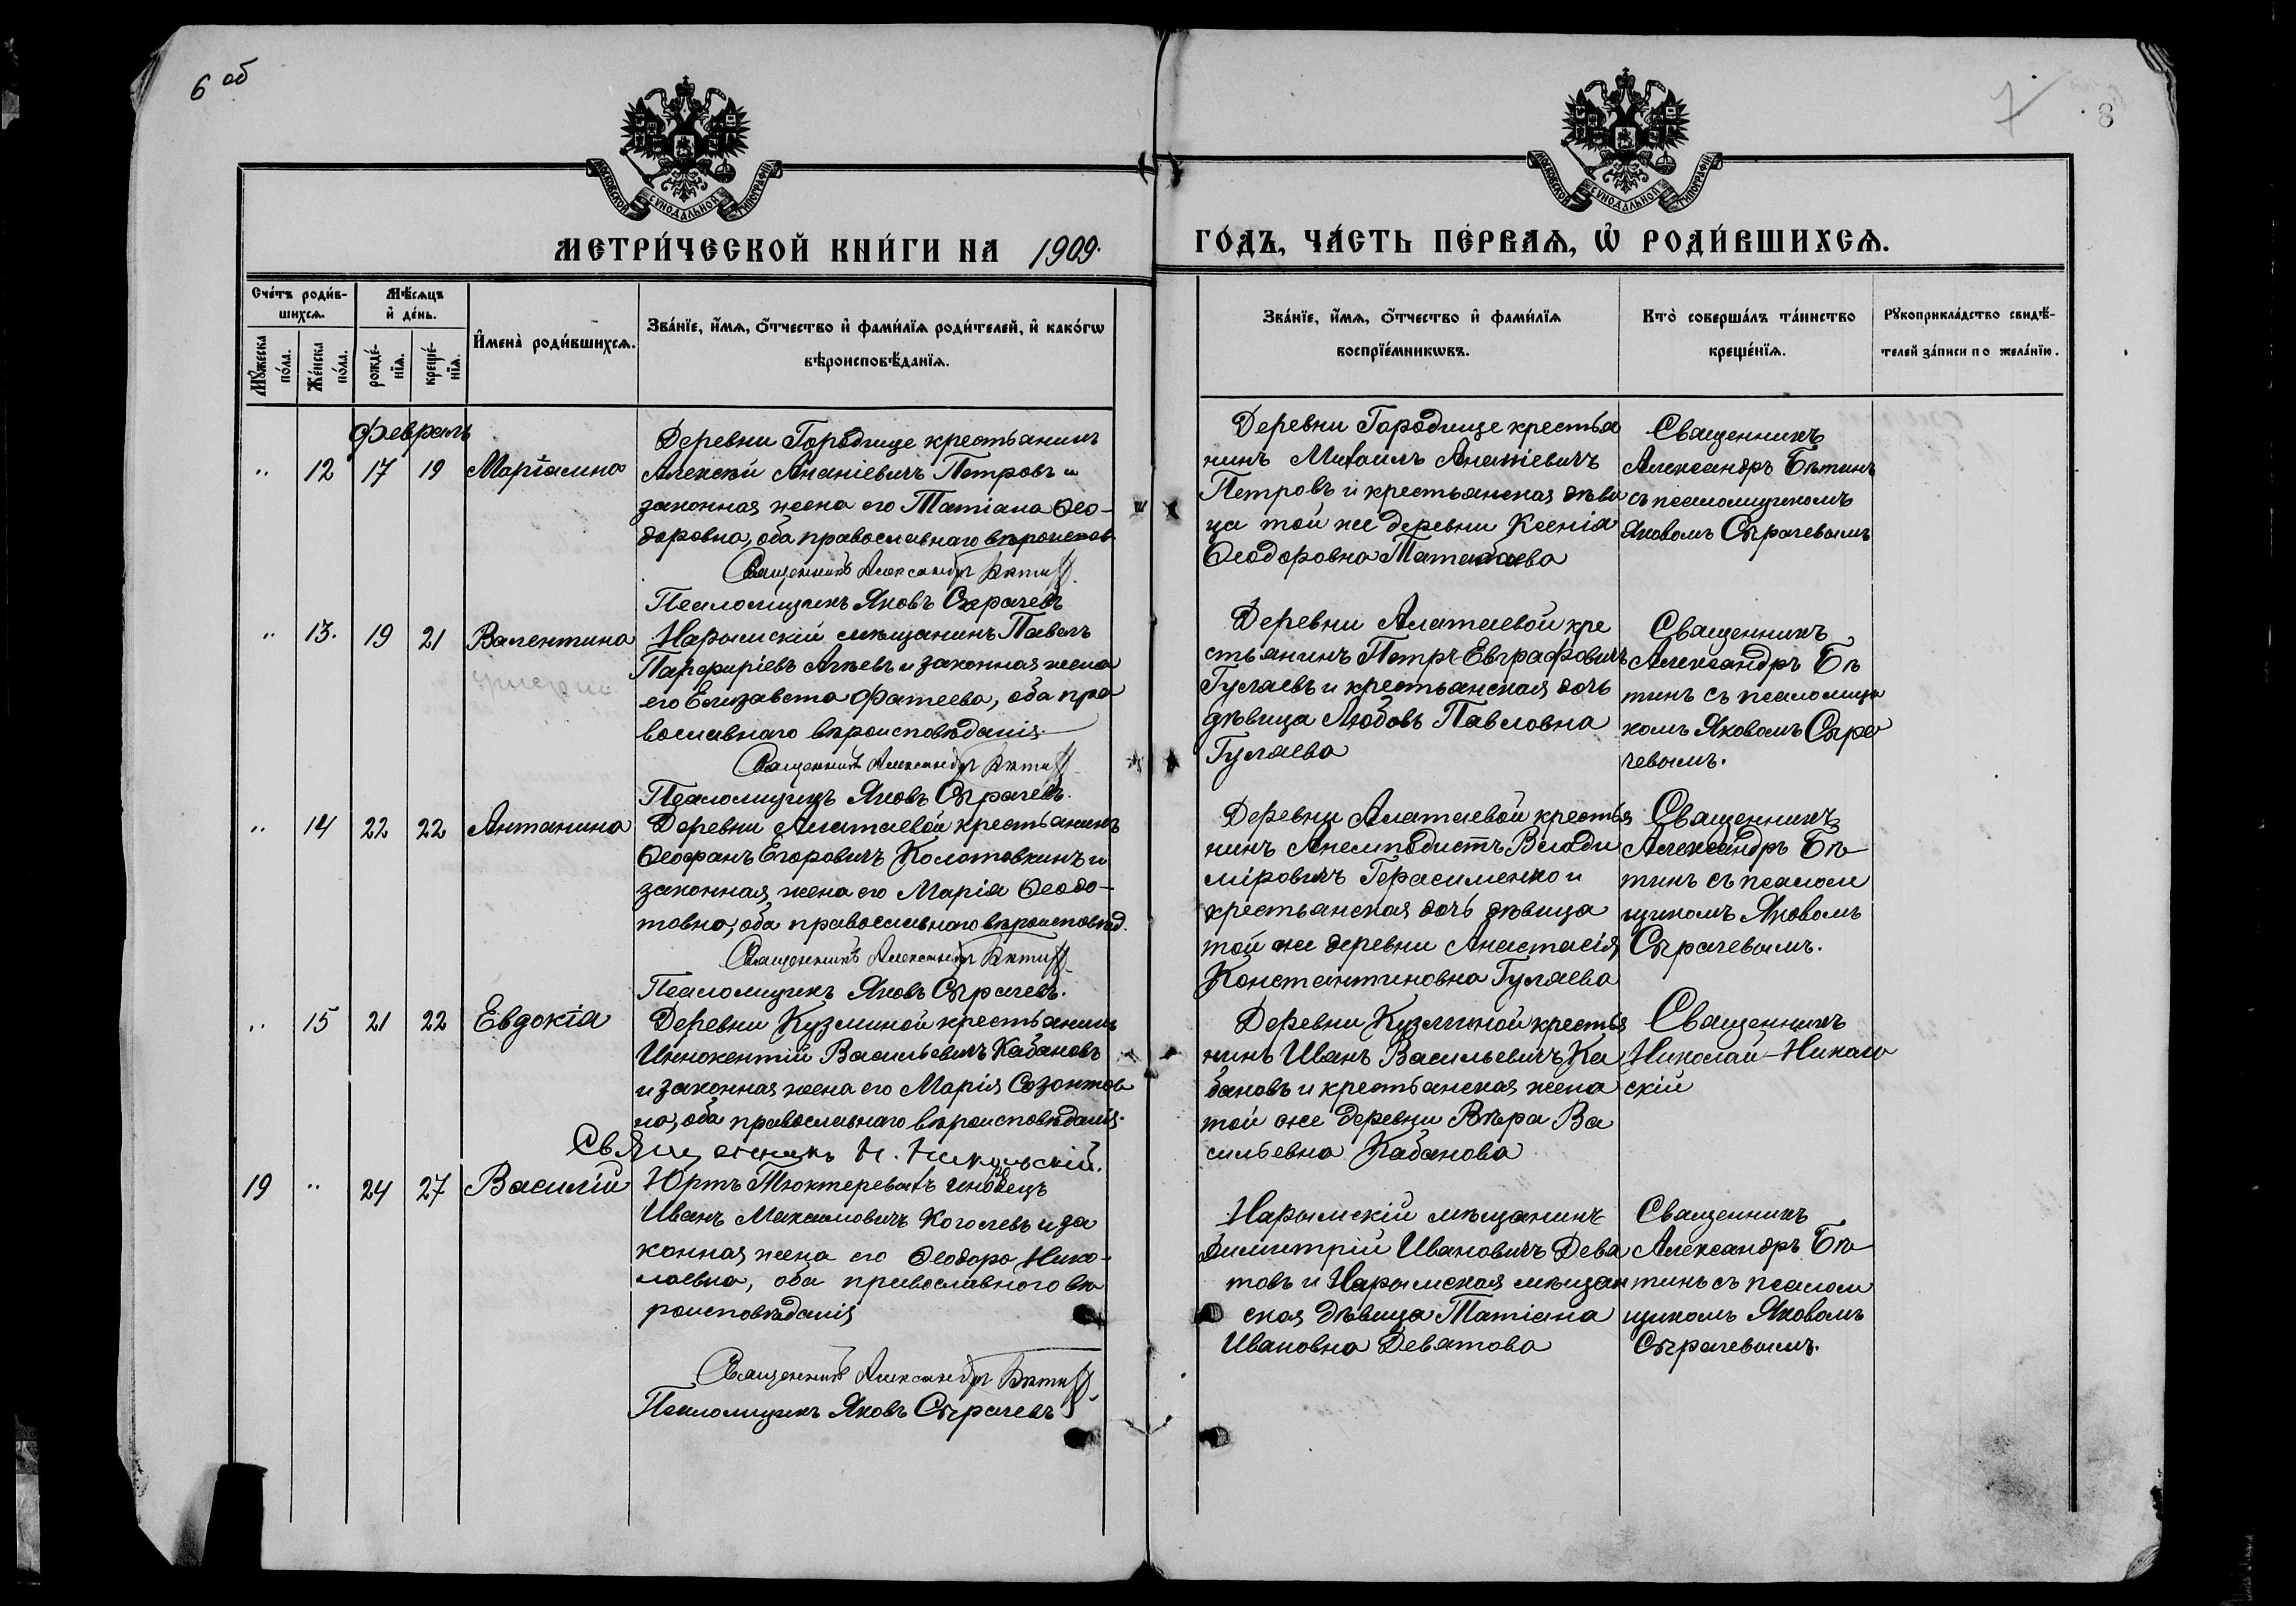 6 об
7
8
МОСКОВСКОЙ СѴНОДАЛЬНОЙ ТИПОГРАФІИ
МОСКОВСКОЙ СѴНОДАЛЬНОЙ ТИПОГРАФІИ
МЕТРИ́ЧЕСКОЙ КНИ́ГИ НА 1909.
ГО́ДЪ, ЧА́СТЬ ПЕ́РВАѦ, Ѡ҆ РОДИ́ВШИХСѦ.
Сче́тъ роди́в-
шихсѧ.
Мѣ́сѧцъ
и҆ де́нь.
Мꙋ́жеска
по́ла.
Же́нска
по́ла.
рожде́-
нїѧ.
креще́-
нїѧ.
И҆мена̀ роди́вшихсѧ.
Зва́нїе, и҆́мѧ, ѻ҆́тчество и҆ фами́лїѧ роди́телей, и҆ како́гѡ
вѣроисповѣ́данїѧ.
Зва́нїе, и҆́мѧ, ѻ҆́тчество и҆ фами́лїѧ
воспрїе́мникѡвъ.
Кто̀ соверша́лъ та́инство
креще́нїѧ.
Рꙋкоприкла́дство свидѣ́-
телей за́писи по жела́нїю.
Февраль
" 12 17 19 Маріамна
Деревни Городище крестьянинъ
Алексѣй Ананіевичъ Петровъ и
законная жена его Татіана Ѳео-
доровна, оба православнаго вѣроиспов.
Священникъ Александръ Бѣтинъ
Псаломщикъ Яковъ Сырачевъ
Деревни Городище крестья
нинъ Михаилъ Ананіевичъ
Петровъ и крестьянская дѣви
ца той же деревни Ксенія
Ѳеодоровна
Священникъ
Александръ Бѣтинъ
съ псаломщикомъ
Яковомъ Сырачевымъ
" 13. 19 21 Валентина
Нарымскій мѣщанинъ Павелъ
Парфиріевъ и законная жена
его Елизавета Фатеева, оба пра
вославнаго вѣроисповѣданія
Священникъ Александръ Бѣтинъ
Псаломщикъ Яковъ Сырачевъ.
Деревни Алатаевой кре
стьянинъ Петръ Евграфовичъ
Гуляевъ и крестьянская дочь
дѣвица Любовь Павловна
Гуляева
Священникъ
Александръ Бѣ
тинъ съ псаломщи
комъ Яковомъ Сыра
чевымъ.
" 14 22 22 Антанина
Деревни Алатаевой крестьянинъ
Ѳеофанъ Егоровичъ Колотовкинъ и
законная жена его Марія Ѳеодо-
товна, оба православнаго вѣроисповѣд.
Священникъ Александръ Бѣтинъ
Псаломщикъ Яковъ Сырачевъ.
Деревни Алатаевой крестья
нинъ Анемподистъ Влади
міровичъ Герасименко и
крестьянская дочь дѣвица
той же деревни Анастасія
Константиновна Гуляева
Священникъ
Александръ Бѣ-
тинъ съ псалом
щикомъ Яковомъ
Сырачевымъ.
" 15 21 22 Евдокія
Деревни Кузминой крестьянинъ
Иннокентій Васильевичъ Кабановъ
и законная жена его Марія Созонтов
на, оба православнаго вѣроисповѣданія.
Священникъ Н. Никольскій.
Деревни Кузминой крестья
нинъ Иванъ Васильевичъ Ка
бановъ и крестьянская жена
той же деревни Вѣра Ва
сильевна Кабанова
Священникъ
Николай Николь
скій
19 " 24 27 Василій
Юртъ Тюктереевыхъ инородецъ
Иванъ Максимовичъ Коголевъ и за
конная жена его Ѳеодора Нико-
лаевна, оба православного вѣ
роисповѣданія
Священникъ Александръ Бѣтинъ
Псаломщикъ Яковъ Сырачевъ
Нарымскій мѣщанинъ
Димитрій Ивановичъ Девя
товъ и Нарымская мѣщан
ская дѣвица Татіана
Ивановна Девятова
Священникъ
Александръ Бѣ-
тинъ съ псалом
щикомъ Яковомъ
Сырачевымъ.